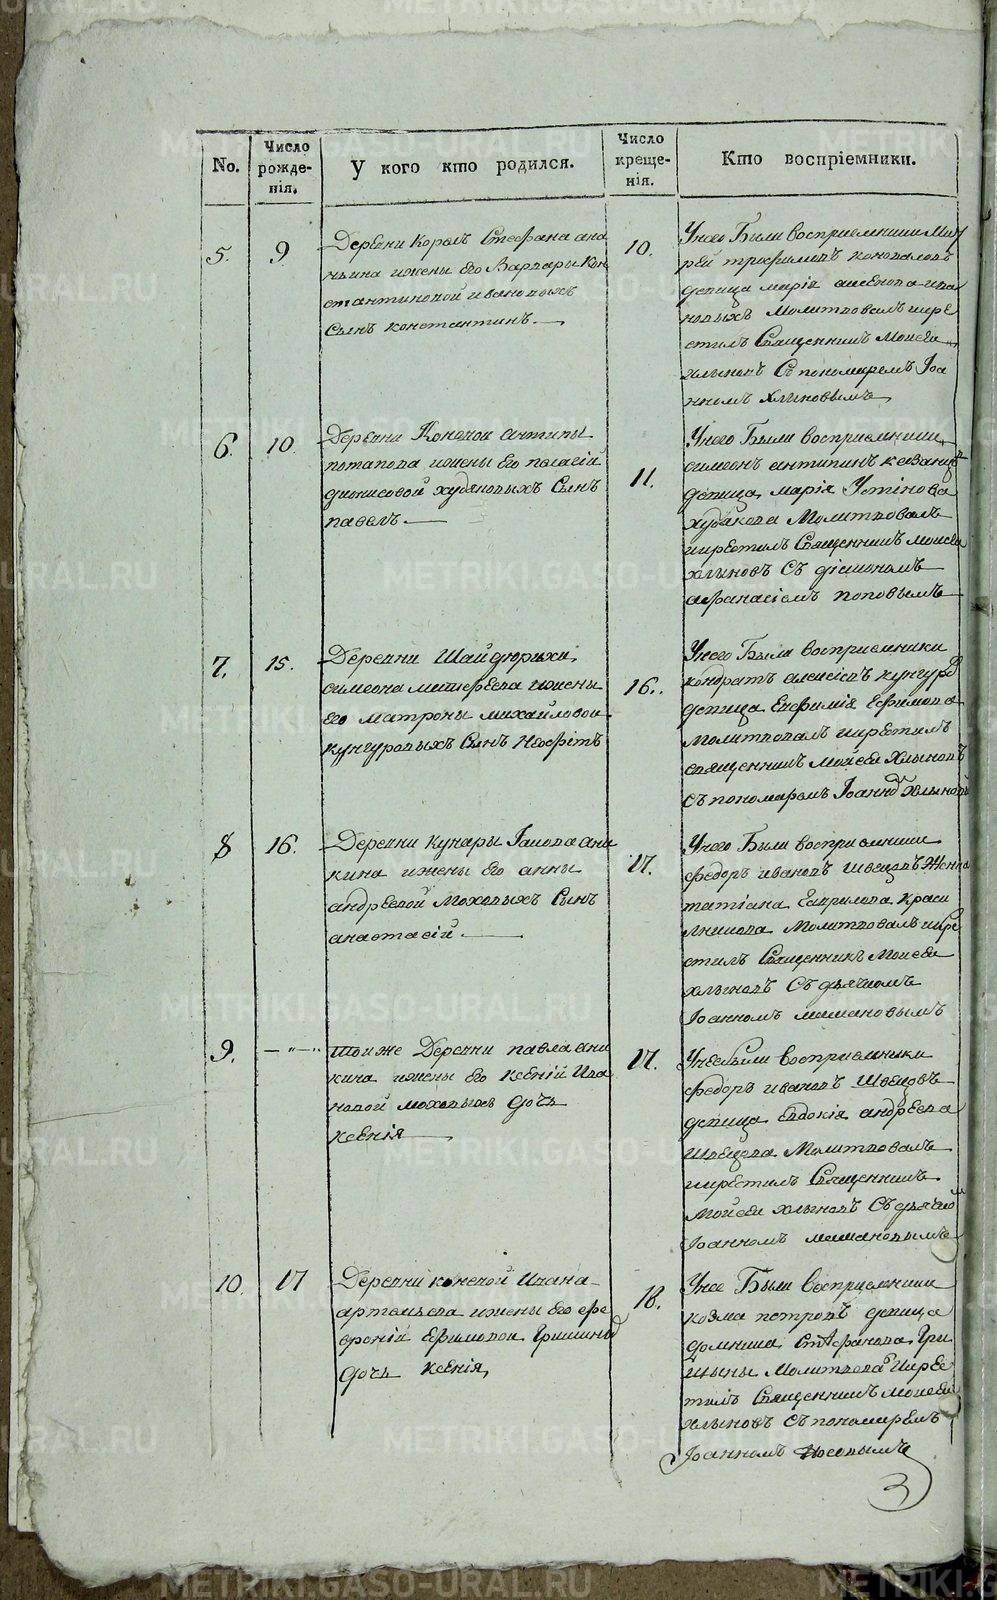 No.
Число рожде-нія.
У кого кто родился.
Число креще-нія.
Кто воспріемники.
5.
9
Деревни Королъ Стефана ана
ньина ижены Его Варвары Кон
стантиновой ивановыхъ
Сынъ константинъ.
10.
Унего Были восприемники
рей трофимовъ коновалов
девица марія
новыхъ Молитвовалъ икре
стилъ Священникъ Моисей
хлыновъ Съ пономаремъ Іоа
нномъ хлыновымъ
6.
10.
Деревни Коневой антипы
потапова ижены Его пелагіи
дионисовой худяковыхъ Сынъ
павелъ.
11.
Унего Были восприемники
симеонъ антипинъ
девица марія Устинова
худякова Молитвовалъ
икрестилъ Священникъ моисей
хлыновъ Съ діакономъ
афанасіемъ поповымъ
7.
15.
Деревни Шайдурихи
симеона матвѣева ижены
его матроны михайловой
кунгуровыхъ Сынъ Неофитъ
16.
Унего Были восприемники
кондратъ алексіевъ кунгуров
девица Евфимія Ефимова
Молитвовалъ икрестилъ
священникъ мойсей хлыновъ
съ пономаремъ Іоанномъ хлыновым
8
16.
Деревни кунары Іакова ани
кина ижены его анны
андреевой Моховыхъ Сынъ
анастасій.
17.
Унего Были восприемники
федоръ ивановъ швецовъ Женка
татіана Гаврилова краси
лникова Молитвовалъ икре
стилъ Священникъ Моисей
хлыновъ Съ дьячкомъ
Іоанномъ
9.
— " —
тойже Деревни павла ани
кина ижены его Ксеніи Ива
новой моховыхъ дочь
ксенія
17.
Унеебыли восприемники
федоръ ивановъ Швецовъ
девица Евдокія андреева
Швецова Молитвовалъ
икрестилъ Священникъ
Мойсей хлыновъ Съ дьячко
Іоанномъ
10.
17
Деревни коневой Ивана
артемьева ижены Его фе
вроніи Ефимовой Гришиных
дочь ксенія,
18.
Унее Были восприемники
козма петровъ девица
домника Стефанова Гри
шины Молитвовалъ икре
тилъ Священникъ моисей
хлыновъ Съ пономаремъ
Іоанномъ
3
METRIKI.GASO-URAL.RU